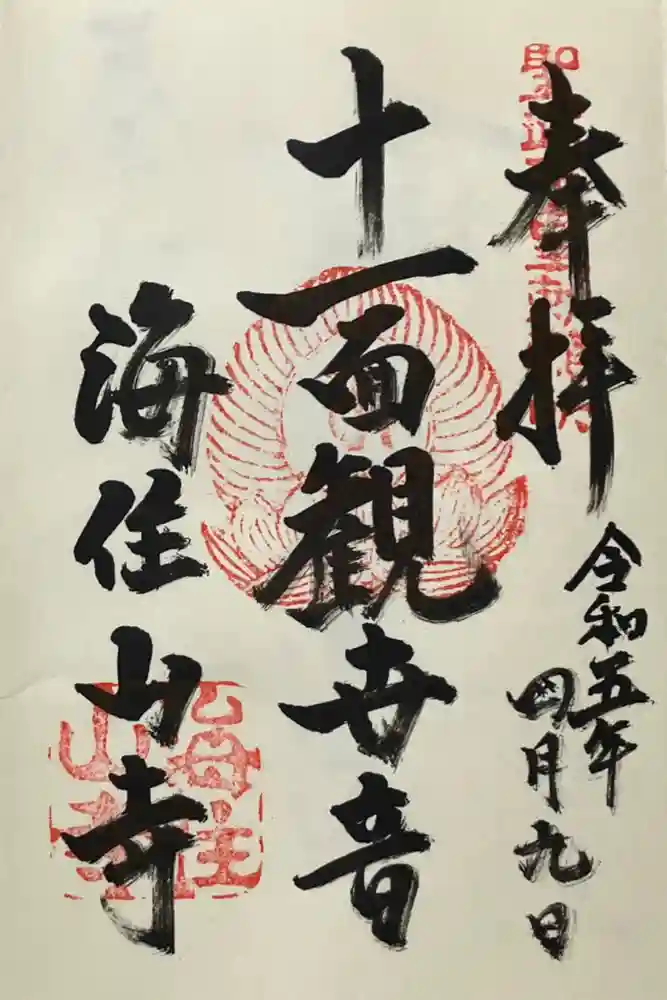 奉拝
令和五年
四月九日
十一面観世音
海住山寺
海住
山寺